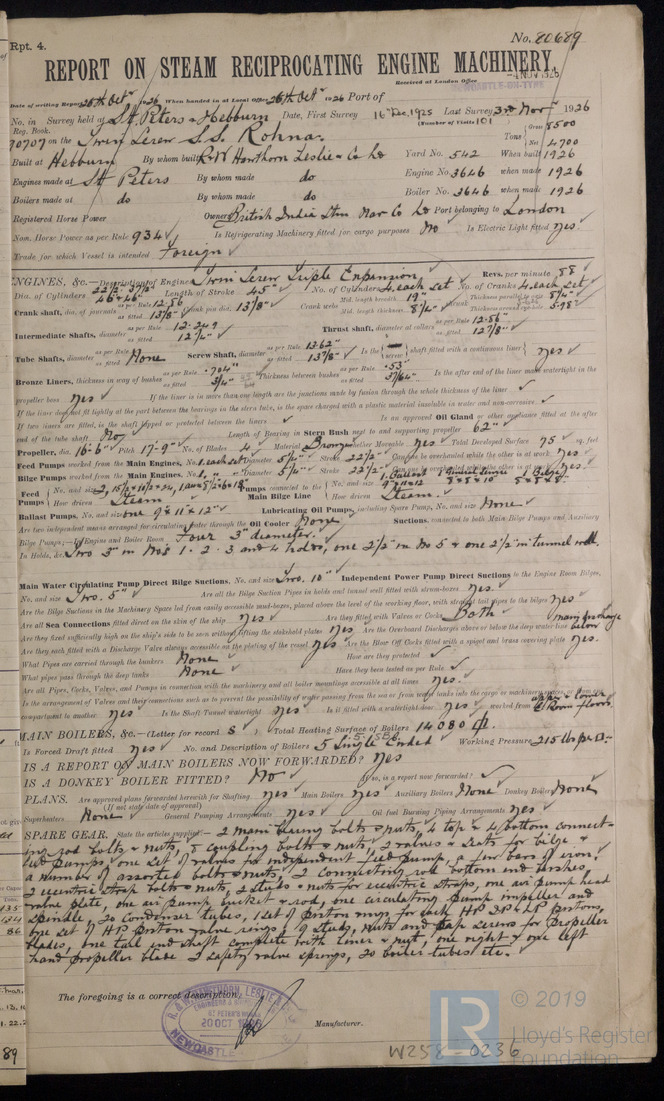 Rpt. 4.
No. 80689
REPORT ON STEAM RECIPROCATING ENGINE MACHINERY.
Received at London Office
-4 NOV 1926
NEWCASTLE-ON-TYNE
Date of writing Report 26th Octr 1926 When handed in at Local Office 26th Octr 1926 Port of
No. in Survey held at St Peters & Hebburn Date, First Survey 16th Dec. 1925 Last Survey 3rd Novr 1926
Reg. Book. (Number of Visits 101)
70707 on the Twin Screw S.S. Rohna. Tons Gross 8500 Net 4700
Built at Hebburn By whom built R&W Hawthorn Leslie & Co Ld Yard No. 542 When built 1926
Engines made at St Peters By whom made do Engine No. 3646 when made 1926
Boilers made at do By whom made do Boiler No. 3646 when made 1926
Registered Horse Power Owners British India Stm Nav Co Ld Port belonging to London
Nom. Horse Power as per Rule 934 Is Refrigerating Machinery fitted for cargo purposes No Is Electric Light fitted yes.
Trade for which Vessel is intended Foreign
ENGINES, &c.—Description of Engines Twin Screw Triple Expansion Revs. per minute 88
Dia. of Cylinders 46 & 46" Length of Stroke 45" No. of Cylinders 4 each set No. of Cranks 4 each set
Crank shaft, dia. of journals as per Rule 12.86 as fitted 13⅛" Crank pin dia. 13⅛" Crank webs Mid. length breadth 19" Mid. length thickness 8¼"
Intermediate Shafts, diameter as per Rule 12.249 as fitted 12¼" Thrust shaft, diameter at collars as per Rule 12.86 as fitted 12⅞"
Tube Shafts, diameter as per Rule as fitted None Screw Shaft, diameter as per Rule 13.62" as fitted 13⅞" Is the screw shaft fitted with a continuous liner yes
Bronze Liners, thickness in way of bushes as per Rule .704" as fitted ¾" Thickness between bushes as per Rule .53" as fitted 37/64" Is the after end of the liner made watertight in the
propeller boss yes If the liner is in more than one length are the joints made by fusion through the whole thickness of the liner
If the liner does not fit tightly at the part between the bearings in the stern tube, is the space charged with a plastic material insoluble in water and non-corrosive
If two liners are fitted, is the shaft lapped or protected between the liners Is an approved Oil Gland or other appliance fitted at the after
end of the tube shaft No Length of Bearing in Stern Bush next to and supporting propeller 62"
Propeller, dia. 16'-6" Pitch 17'-9" No. of Blades 4 Material Bronze whether Moveable yes Total Developed Surface 75 sq. feet
Feed Pumps worked from the Main Engines, No. 1 each set Diameter 5½" Stroke 22½" Can one be overhauled while the other is at work yes
Bilge Pumps worked from the Main Engines, No. 1 " " Diameter 5½" Stroke 22½" Can one be overhauled while the other is at work yes
Feed Pumps No. and size
How driven Steam Pumps connected to the Main Bilge Line How driven Steam.
Ballast Pumps, No. and size one 9" x 11" x 12" Lubricating Oil Pumps, including Spare Pump, No. and size None
Are two independent means arranged for circulating water through the Oil Cooler None Suctions, connected to both Main Bilge Pumps and Auxiliary
Bilge Pumps;—In Engine and Boiler Room Four 3" diameter.
In Holds, &c. Two 3" in Nos 1. 2. 3 and 4 holds, one 2½" in No 5 & one 2½" in tunnel well.
Main Water Circulating Pump Direct Bilge Suctions, No. and size Two. 10" Independent Power Pump Direct Suctions to the Engine Room Bilges,
No. and size Two. 5" Are all the Bilge Suction Pipes in holds and tunnel well fitted with strum-boxes yes.
Are the Bilge Suctions in the Machinery Space led from easily accessible mud-boxes, placed above the level of the working floor, with straight tail pipes to the bilges yes
Are all Sea Connections fitted direct on the skin of the ship yes Are they fitted with Valves or Cocks Both
Are they fixed sufficiently high on the ship's side to be seen without lifting the stokehold plates yes Are the Overboard Discharges above or below the deep water line main discharge below
Are they each fitted with a Discharge Valve always accessible on the plating of the vessel yes Are the Blow Off Cocks fitted with a spigot and brass covering plate yes.
What Pipes are carried through the bunkers None How are they protected
What pipes pass through the deep tanks None Have they been tested as per Rule
Are all Pipes, Cocks, Valves, and Pumps in connection with the machinery and all boiler mountings accessible at all times yes.
Is the arrangement of Valves and their connections such as to prevent the possibility of water passing from the sea or from water tanks into the cargo or machinery spaces, or from one
compartment to another yes Is the Shaft Tunnel watertight yes Is it fitted with a watertight door yes worked from upper & lower E. Room floors.
MAIN BOILERS, &c.—(Letter for record S) Total Heating Surface of Boilers 14080
Is Forced Draft fitted yes No. and Description of Boilers 5 Single Ended 5. SB. Working Pressure 215 lbs per
IS A REPORT ON MAIN BOILERS NOW FORWARDED? yes
IS A DONKEY BOILER FITTED? No If so, is a report now forwarded?
PLANS. Are approved plans forwarded herewith for Shafting yes Main Boilers yes Auxiliary Boilers None Donkey Boilers None
(If not state date of approval)
Superheaters None General Pumping Arrangements yes Oil fuel Burning Piping Arrangements yes
SPARE GEAR. State the articles supplied:— 2 main bearing bolts & nuts, 4 top & 4 bottom connect-
ing rod bolts & nuts, 8 coupling bolts & nuts, 2 valves & seats for bilge &
feed pumps, one set of valves for independent feed pump, a few bars of iron,
a number of assorted bolts & nuts, 2 connecting rod bottom end bushes,
2 eccentric strap bolts & nuts, 2 studs & nuts for eccentric straps, one air pump head
valve plate, one air pump bucket & rod, one circulating pump impeller and
spindle, 20 condenser tubes, 1 set of piston rings for each HP IP & LP pistons,
one set of HP piston valve rings, 9 studs, nuts and cap screws for propeller
blades, one tail end shaft complete with liner & nut, one right & one left
hand propeller blade 2 safety valve springs, 20 boiler tubes etc.
The foregoing is a correct description,
R. & W. HAWTHORN, LESLIE & Co
ENGINEERS &
ST PETER'S WORKS
20 OCT 1926
NEWCASTLE
Manufacturer.
W258-0236
LR
© 2019
Lloyd's Register
Foundation
89